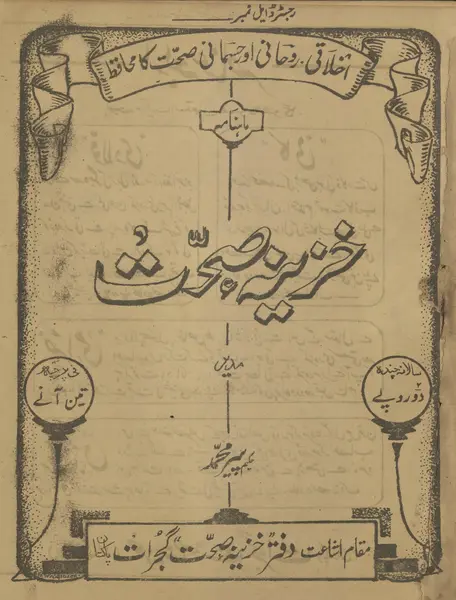 رجسٹرڈ ایل نمبر
اخلاقی، روحانی اور جسمانی صحت کا محافظ
ماہنامہ
خزینہ صحت
مدیر
حکیم پیر محمد
سالانہ چندہ
دو روپے
فی پرچہ
تین آنے
مقام اشاعت دفتر "خزینہ صحت" گجرات پاکستان